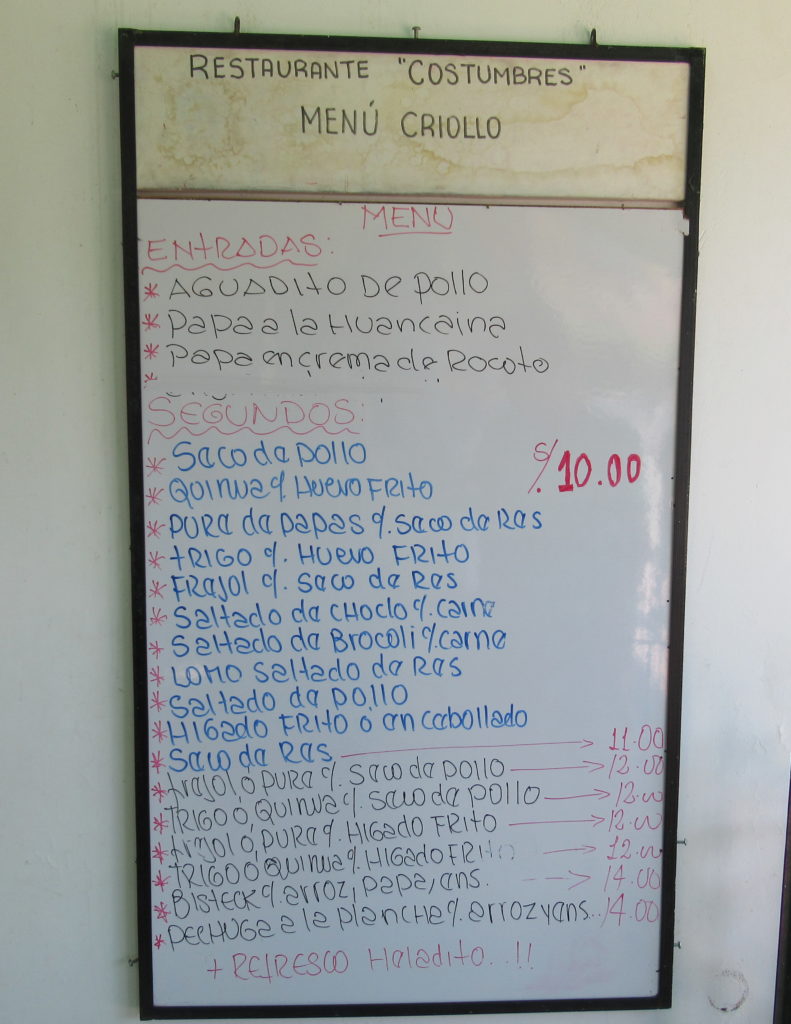 RESTAURANTE "COSTUMBRES"
MENÚ CRIOLLO
MENU
ENTRADAS:
* AGUADITO DE POLLO
* Papa a la Huancaina
* Papa en crema de Rocoto
*
SEGUNDOS:
* Seco de pollo
* QUINUA c/. HUEVO FRITO
S/. 10.00
* PURE de papas c/. Seco de Res
* TRIGO c/. HUEVO FRITO
* FREJOL c/. Seco de Res
* Saltado de CHOCLO c/. carne
* Saltado de Brocoli c/. carne
* LOMO Saltado de Res
* Saltado de POLLO
* HIGADO FRITO o encebollado
* Seco de RES → 11.00
* Frejol o PURE c/. Seco de pollo → 12.00
* TRIGO o QUINUA c/. Seco de pollo → 12.00
* Frejol o, PURE c/. HIGADO FRITO → 12.00
* TRIGO o QUINUA c/. HIGADO FRITO → 12.00
* BISTECK c/. arroz, papa, ens. --> 14.00
* PECHUGA a la plancha c/. arroz y ens.. 14.00
+ REFRESCO Heladito..!!